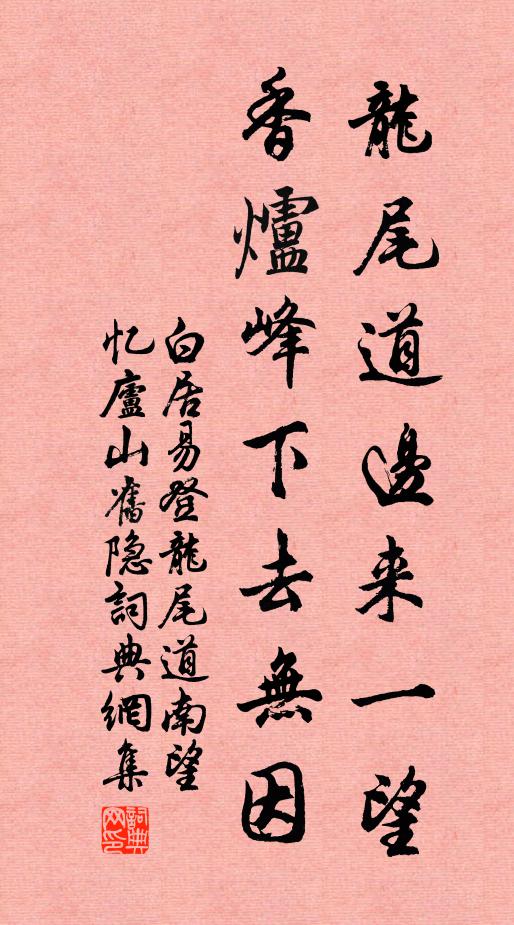 龍尾道邊来一望
香爐峰下去無因
白居易登龍尾道南望
忆廬山舊隐詞典網集
詞典网印